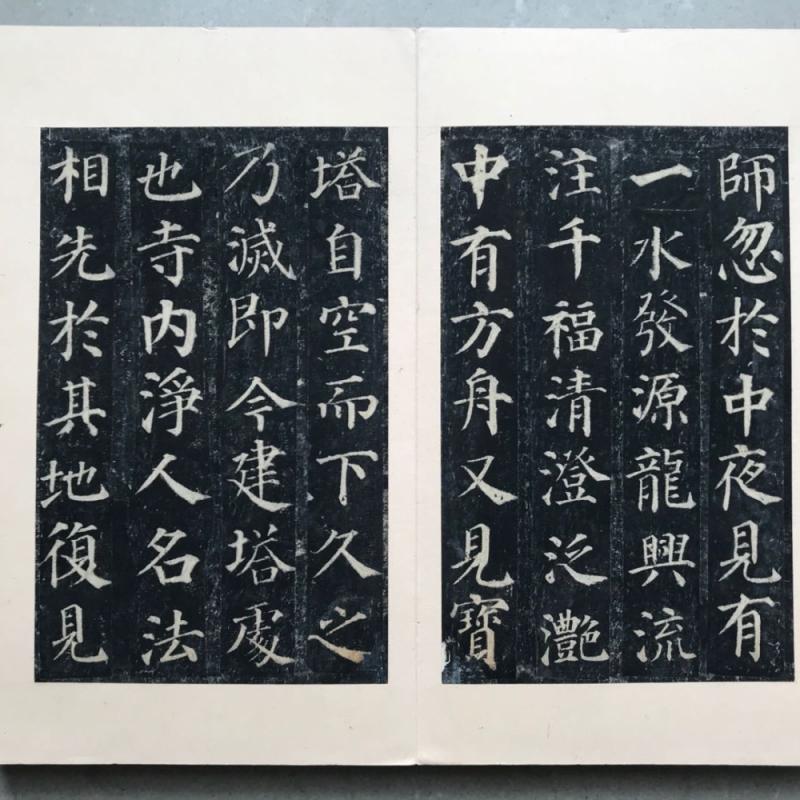 師忽於中夜見有
一水發源龍興流
注千福清澄泛灧
中有方舟又見寶
塔自空而下久之
乃滅即今建塔處
也寺内淨人名法
相先於其地復見